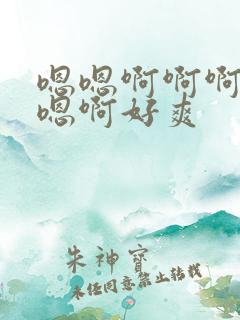 嗯嗯啊啊啊
嗯啊好爽
朱神宝
未经同意禁止转载